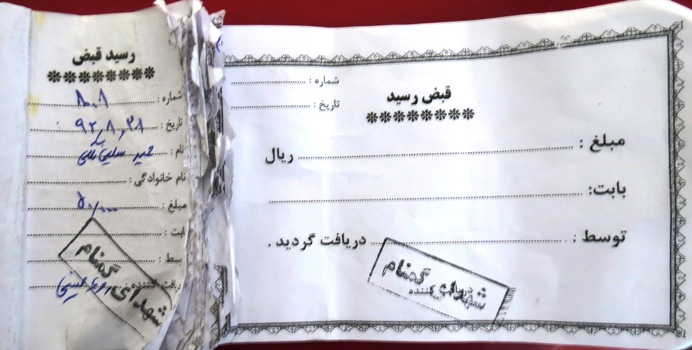 رسید قبض
********
شماره : ۸۰۰۸
تاریخ : ۹۲،۸،۲۸
نام :
نام خانوادگی :
مبلغ :
بابت :
توسط :
دریافت کننده :
شهدای گمنام
شماره :
تاریخ :
قبض رسید
********
مبلغ : ریال
بابت:
توسط : دریافت گردید .
شهدای گمنام